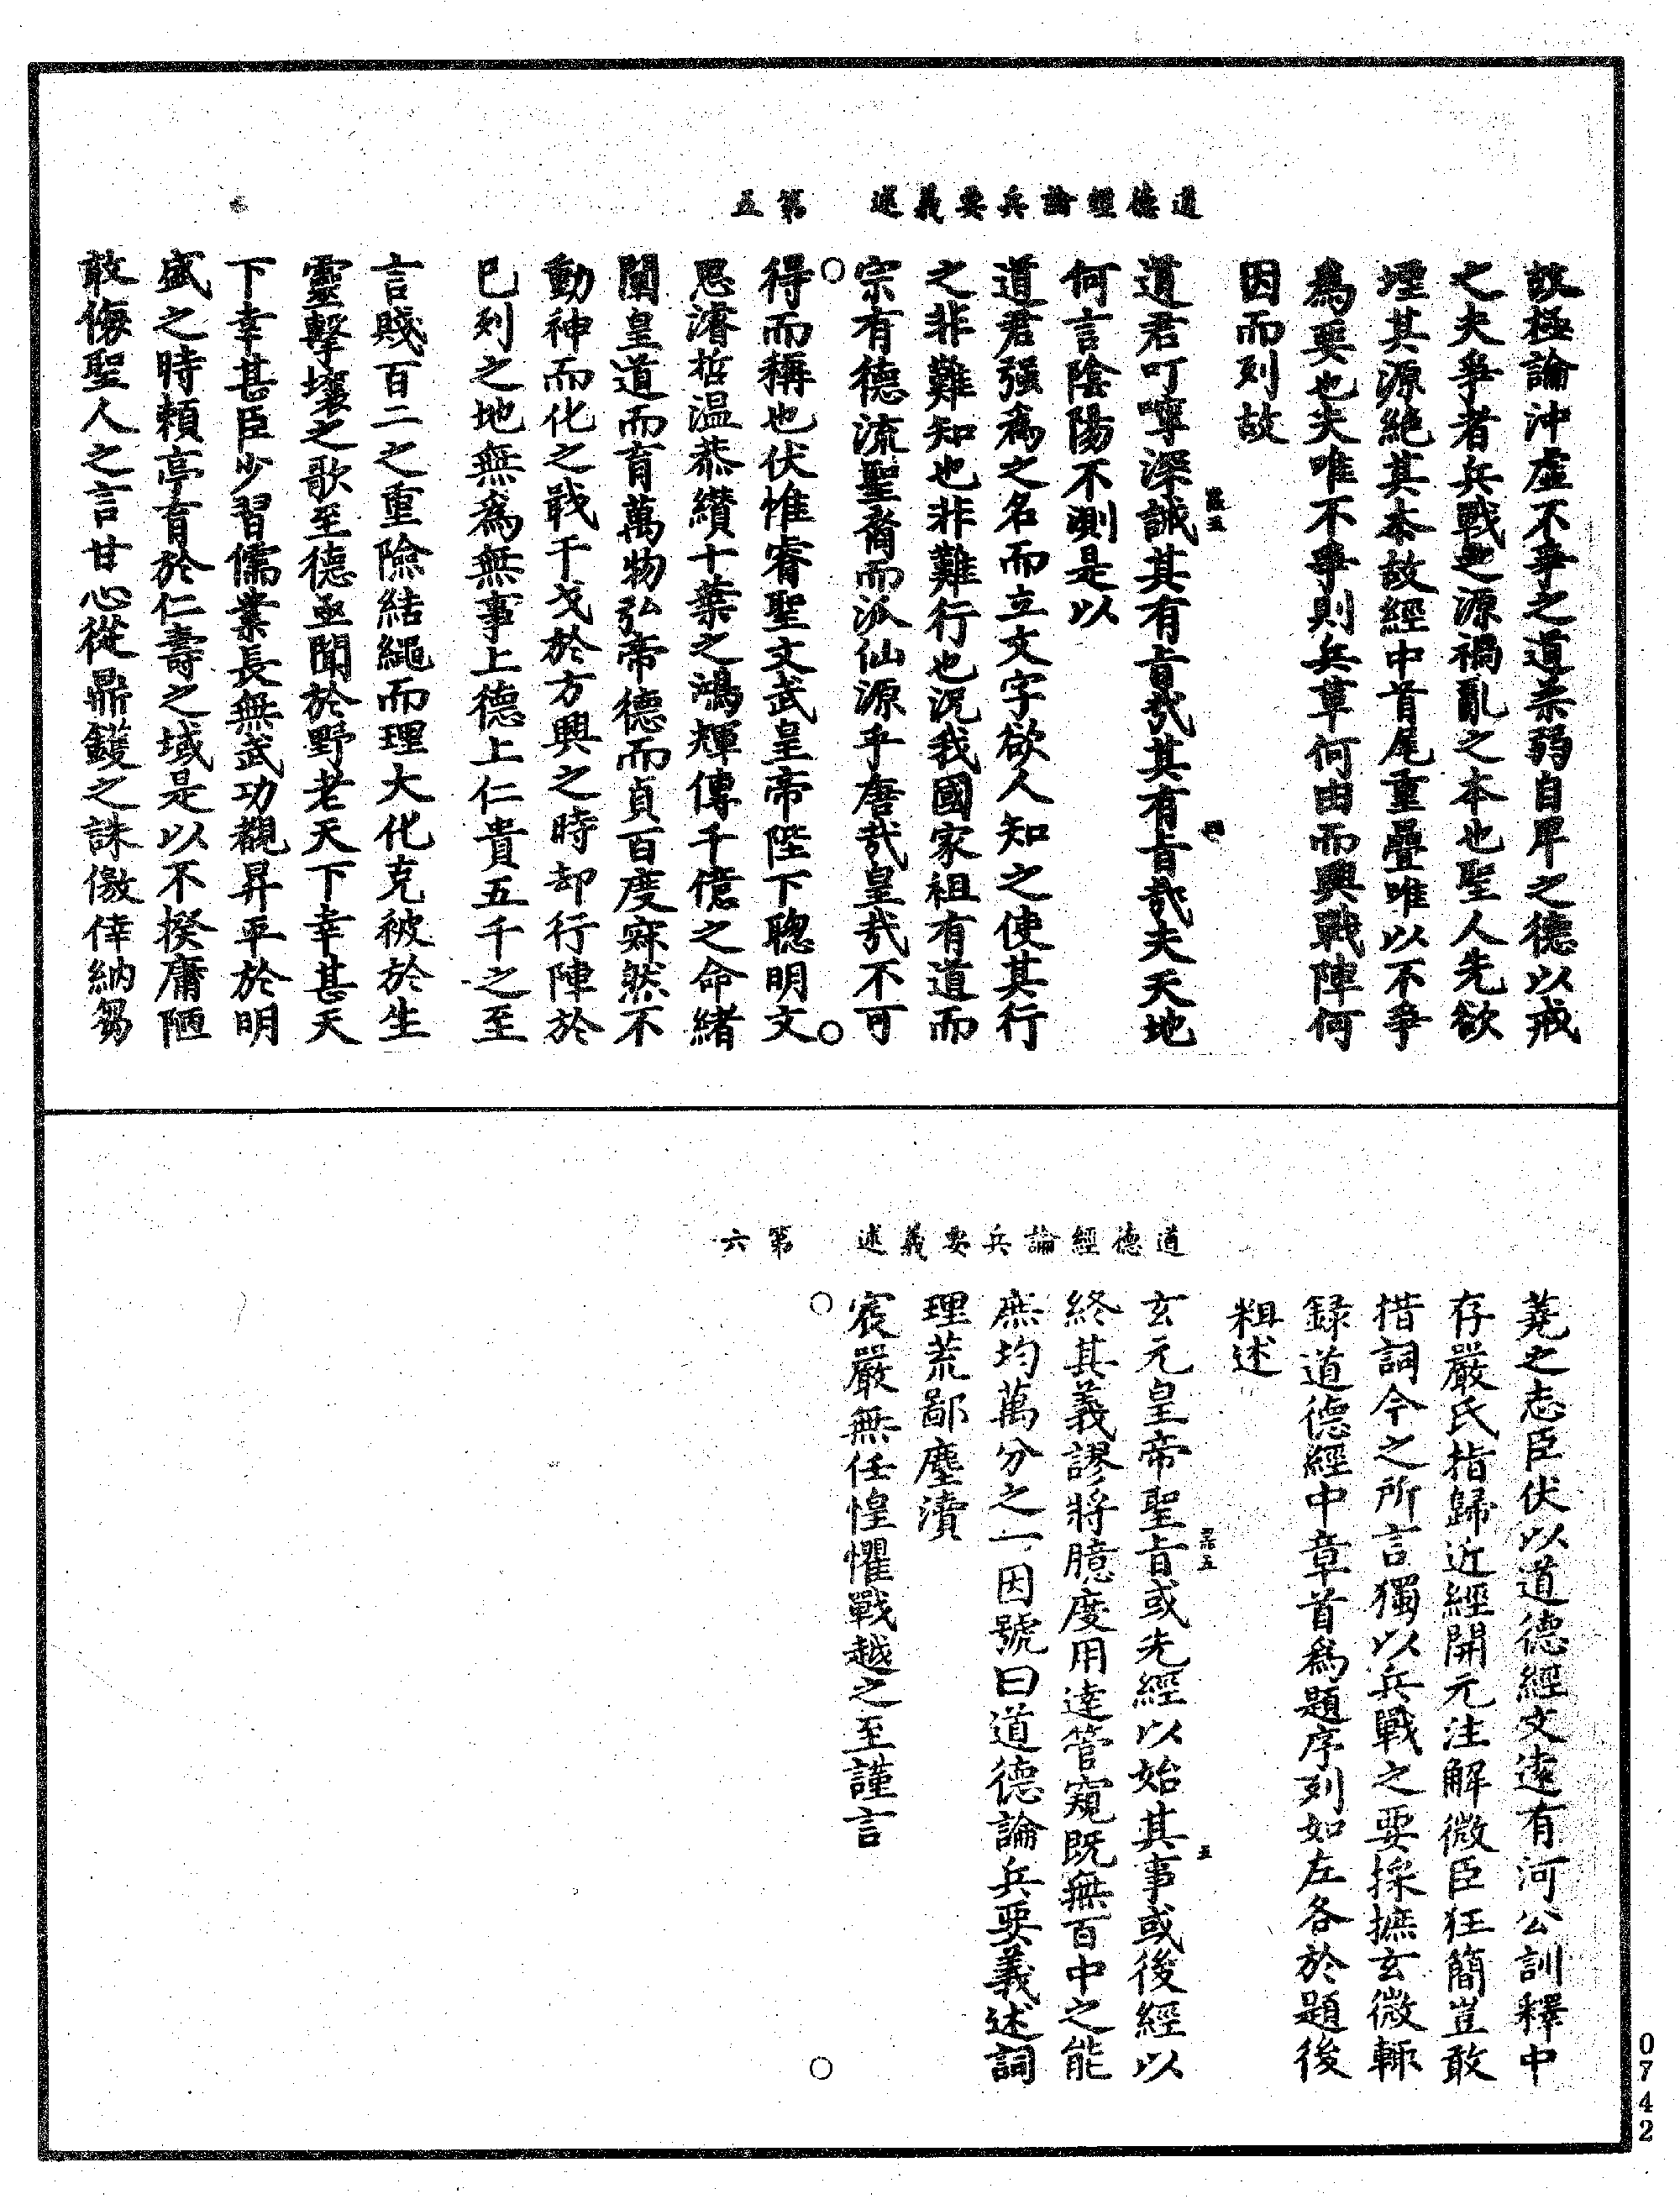 道德經論兵要義述　第五
故極論沖虛不爭之道柔弱自卑之德以戒
之夫爭者兵戰之源禍亂之本也聖人先欲
堙其源絕其本故經中首尾重疊唯以不爭
爲要也夫唯不爭則兵革何由而興戰陣何
因而列故
道君叮嚀深誡其有旨哉其有旨哉夫天地
何言陰陽不測是以
道君强爲之名而立文字欲人知之使其行
之非難知也非難行也況我國家祖有道而
宗有德流聖裔而派仙源乎唐哉皇哉不可
得而稱也伏惟睿聖文武皇帝陛下聰明文
思濬哲溫恭纘十葉之鴻輝傳千億之命緒
闡皇道而育萬物弘帝德而貞百度寂然不
動神而化之戢干戈於方興之時却行陣於
已列之地無爲無事上德上仁貴五千之至
言賤百二之重險結繩而理大化克被於生
靈擊壤之歌至德亟聞於野老天下幸甚天
下幸甚臣少習儒業長無武功覩昇平於明
盛之時賴亭育於仁壽之域是以不揆庸陋
敢侮聖人之言甘心從鼎鑊之誅儌倖納芻
道德經論兵要義述　第六
蕘之志臣伏以道德經文遠有河公訓釋中
存嚴氏指歸近經開元注解微臣狂簡豈敢
措詞今之所言獨以兵戰之要採摭玄微輒
録道德經中章首爲題序列如左各於題後
粗述
玄元皇帝聖旨或先經以始其事或後經以
終其義謬將臆度用達管窺既無百中之能
庶均萬分之一因號曰道德論兵要義述詞
理荒鄙塵瀆
宸嚴無任惶懼戰越之至謹言
0742